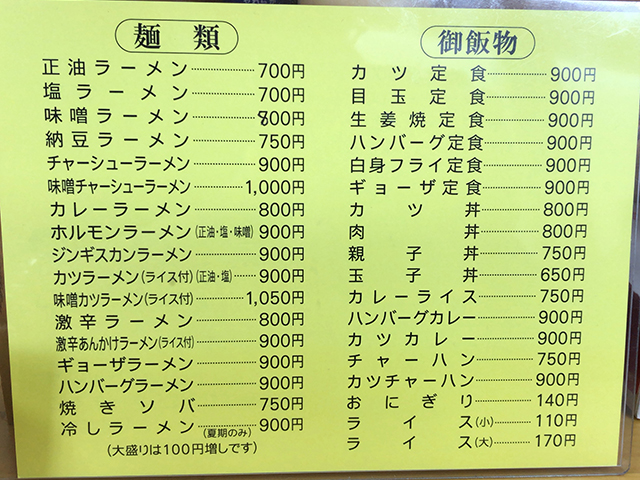 麺類
正油ラーメン 700円
塩ラーメン 700円
味噌ラーメン 800円
納豆ラーメン 750円
チャーシューラーメン 900円
味噌チャーシューラーメン 1,000円
カレーラーメン 800円
ホルモンラーメン(正油・塩・味噌) 900円
ジンギスカンラーメン 900円
カツラーメン(ライス付)(正油・塩) 900円
味噌カツラーメン(ライス付) 1,050円
激辛ラーメン 800円
激辛あんかけラーメン(ライス付) 900円
ギョーザラーメン 900円
ハンバーグラーメン 900円
焼きソバ 750円
冷しラーメン(夏期のみ) 900円
(大盛りは100円増しです)
御飯物
カツ定食 900円
目玉定食 900円
生姜焼定食 900円
ハンバーグ定食 900円
白身フライ定食 900円
ギョーザ定食 900円
カツ丼 800円
肉丼 800円
親子丼 750円
玉子丼 650円
カレーライス 750円
ハンバーグカレー 900円
カツカレー 900円
チャーハン 750円
カツチャーハン 900円
おにぎり 140円
ライス(小) 110円
ライス(大) 170円